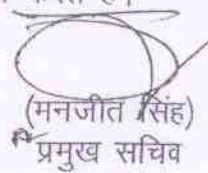 (मनजीत सिंह)
प्रमुख सचिव